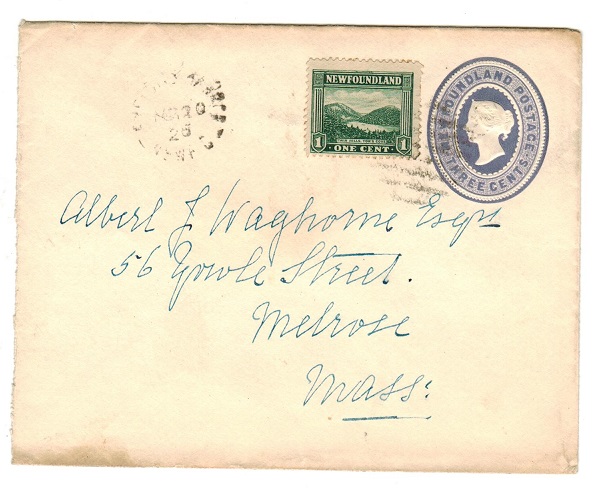 NEWFOUNDLAND
1 1
ONE CENT
NEWFOUNDLAND POSTAGE
THREE CENTS
25
Albert J Waghorne Esqr
56 Street.
Melrose
Mass: